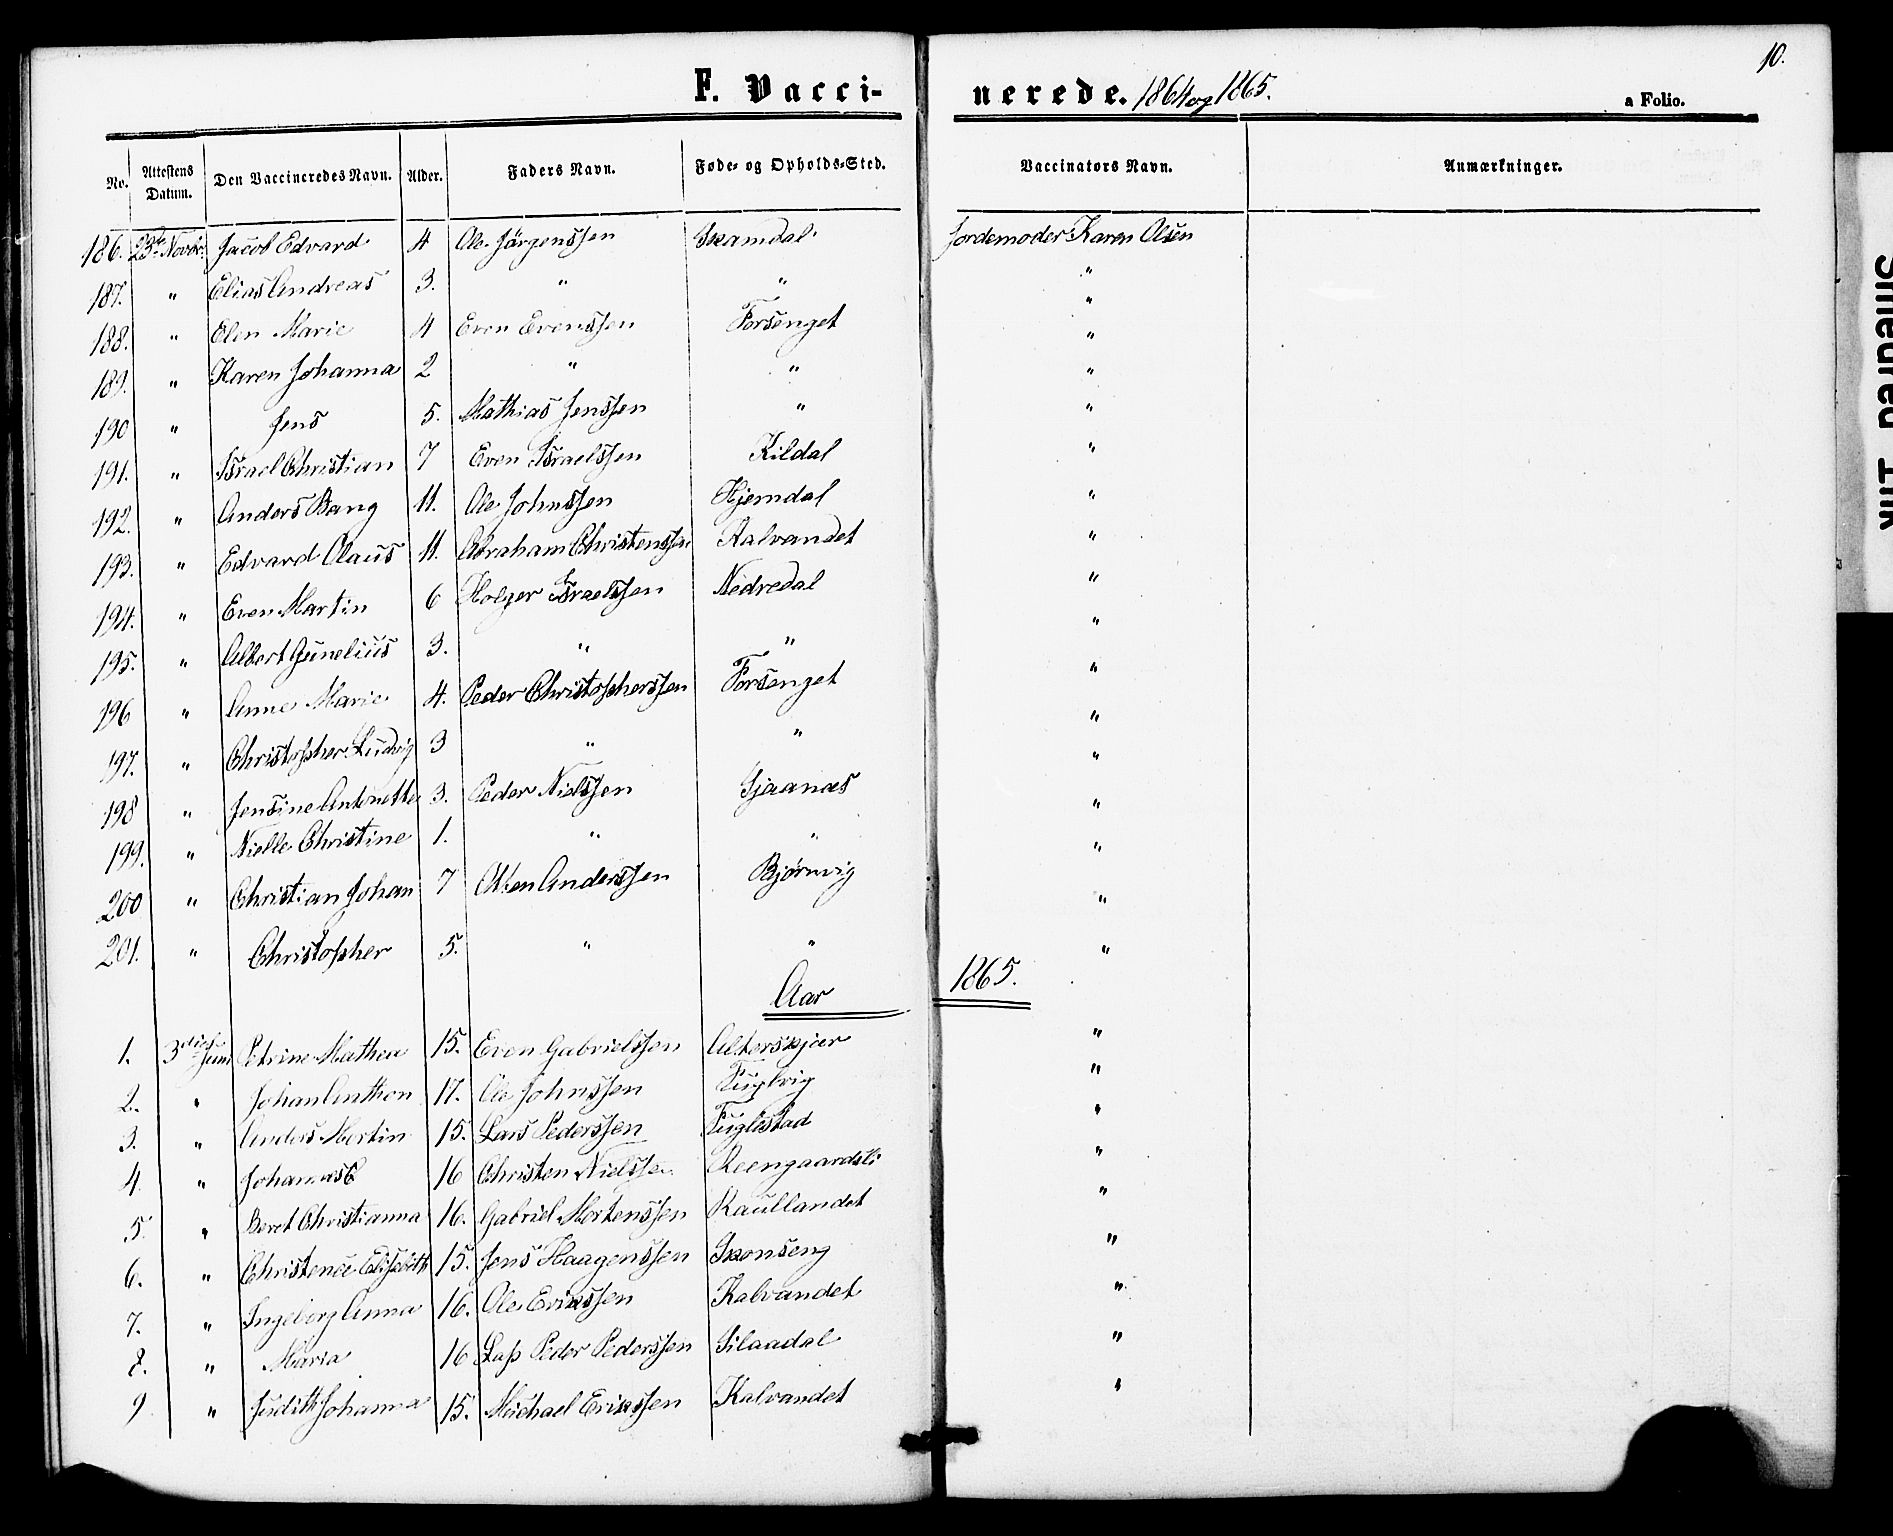 10.
F. Vaccinerede. 1864 og 1865. a Folio.
No. Attestens Datum. Den Vaccineredes Navn. Alder. Faders Navn. Føde- og Opholds-Sted. Vaccinators Navn. Anmærkninger.
186. 23de Novbr. Jacob Edvard 4 Ole Jörgenssen Skamdal Jordemoder Karen Olsen
187. " Elias Andreas 3. " " "
188. " Elen Marie 4 Even Evenssen Forsenget "
189. " Karen Johanna 2 " " "
190 " Jens 5. Mathias Jenssen " "
191. " Israel Christian 7 Even Israelssen Kildal "
192. " Anders Bang 11. Ole Johnssen Hjemdal "
193. " Edvard Olaus 11. Abraham Christenssen Kalvandet "
194. " Even Martin 6 Holger Israelssen Nedredal "
195. " Albert Gunelius 3. " " "
196 " Anne Marie 4. Peder Christopherssen Forsenget "
197. " Christopher Ludvig 3 " " "
198 " Jensine Antonette 3. Peder Nielssen Sjaanæs "
199. " Nielle Christine 1. " " "
200 " Christian Johan 7 Olten Anderssen Bjørnvig "
201. " Christopher 5. " " "
Aar 1865.
1. 3die Juni Petrine Mathea 15. Even Gabrielssen Alterskjær "
2. " Johan Anthon 17. Ole Johnssen Fuglvig "
3. " Anders Martin 15. Lars Pederssen Fuglestad "
4. " Johannes 16 Christen Nielssen Reengaardsli "
5. " Beret Christianna 16. Gabriel Mortenssen Raullandet "
6. " Christence Elisabeth 15. Jens Haagenssen Skonseng "
7. " Ingeborg Anna 16. Ole Erikssen Kalvandet "
8. " Maria 16 Lass Peder Pederssen Silaadal "
9 " Judith Johanna 15. Michael Erikssen Kalvandet "